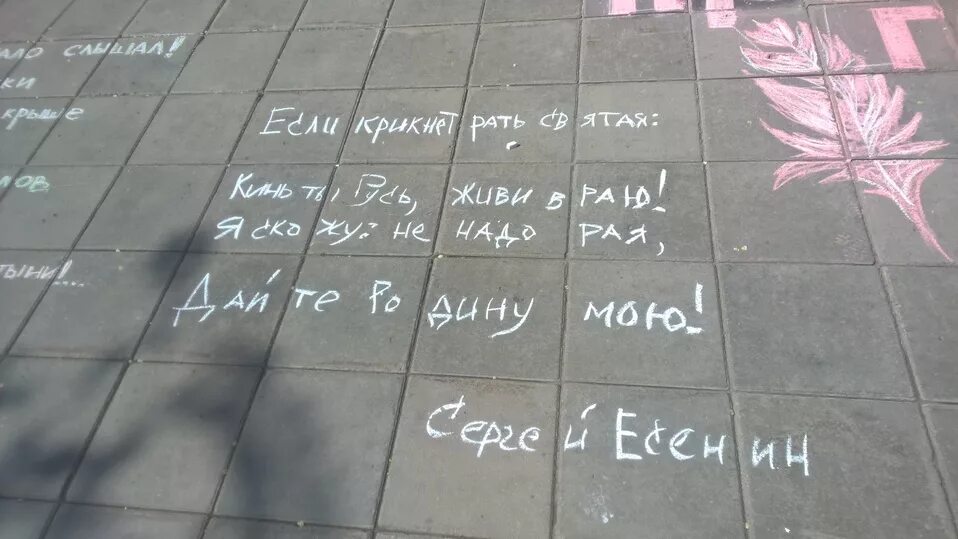 слышал!
крыше
Если крикнет рать святая:
Кинь ты Русь, живи в раю!
Я скожу: не надо рая,
Дайте Родину мою!
Сергей Есенин
Г